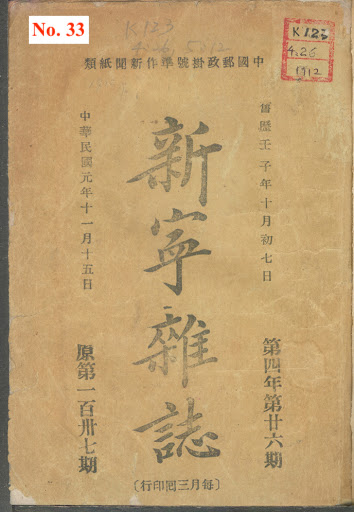 No. 33
K123
K123
4.26
1912
中國郵政掛號準作新聞紙類
舊歷壬子年十月初七日
第四年第廿六期
新寧雜誌
中華民國元年十一月十五日
原第一百卅七期
〔每月三囘印行〕